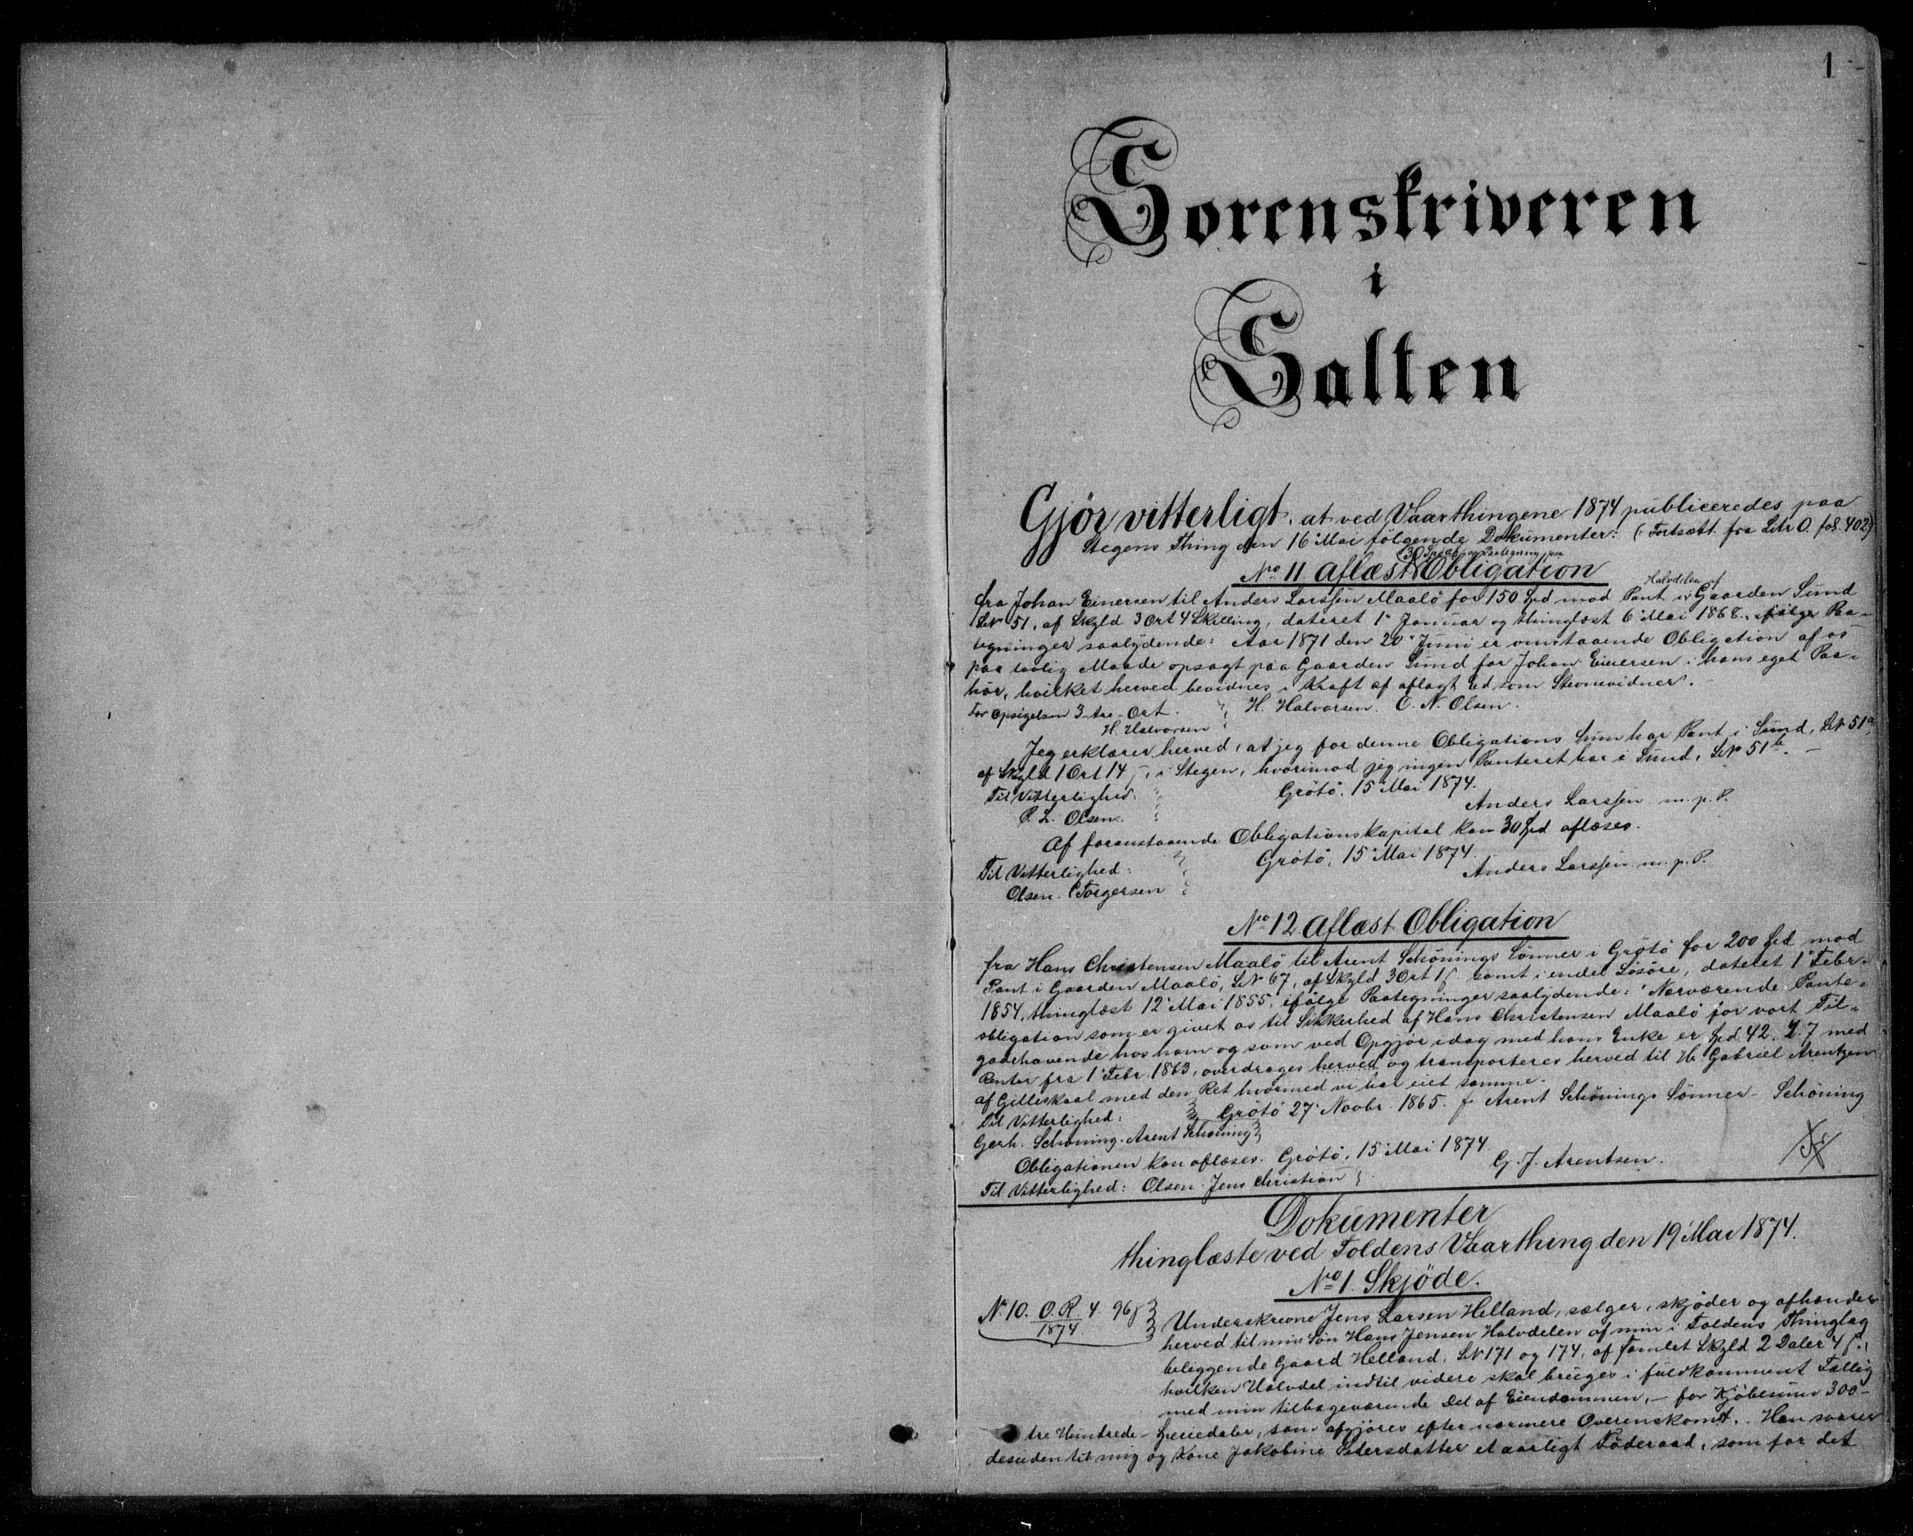 1
Sorenskriveren
i
Salten
Gjör vitterligt, at ved Vaarthingene 1874 publiceredes paa
Stegens Thing den 16' Mai følgende Dokumenter: (: Fortsætt. fra Litr O. fol. 402)
No 11 aflæst Obligation
Halvdelen af
fra Johan Einersen til Anders Larssen Maalö for 150 Spd mod Pant i Gaarden Sund
LN 51, af Skyld 3 Ort 4 Skilling, dateret 1' Januar og thinglæst 6' Mai 1868, ifølge Paa-
tegninger saalydende: Aar 1871 den 20' Juni er omstaaende Obligation af os
paa lovlig Maade opsagt paa Gaarden Sund for Johan Einersen i hans eget Paa-
hør, hvilket herved bevidnes i Kraft af aflagt Ed som Stevnevidner.
For Opsigelsen 3 - tre - Ort. H. Halvorsen. C. N. Olsen.
H. Halvorsen
Jeg erklærer herved, at jeg for denne Obligations Sum har Pant i Sund, LN 51a,
af Skyld 1 Ort 14 ʃ, i Stegen, hvorimod jeg ingen Panteret har i Sund, LN 51b.
Til Vitterlighed: Grötö, 15' Mai 1874.
P. L. Olsen. Anders Larssen m. p. P.
Af foranstaaende Obligationskapital kan 30 Spd aflæses.
Til Vitterlighed: Grötö, 15' Mai 1874.
Olsen. C Torgersen Anders Larssen m. p. P.
No 12 aflæst Obligation
fra Hans Christensen Maalö til Arent Schönings Sönner i Grötö for 200 Spd mod
Pant i Gaarden Maalö, LN 67, af Skyld 3 Ort 1 ʃ. samt i endel Lösöre, dateret 1' Febr.
1854, thinglæst 12' Mai 1855, ifølge Paategninger saalydende: Nærværende Pante-
obligation som er givet os til Sikkerhed af Hans Christensen Maalö for vort Til-
godehavende hos ham og som ved Opgjør idag med hans Enke er Spd. 42. 2. 7 med
Renter fra 1' Febr 1863, overdrages herved og transporteres herved til Hr Gabriel Arentzen
af Gilleskaal med den Ret hvormed vi har eiet samme.
Til Vitterlighed: Grötö 27' Novbr. 1865. f Arent Schönings Sönner - Schöning
Gerh. Schöning. Arent Schöning
Obligationen kan aflæses. Grötö, 15' Mai 1874.
Til Vitterlighed: Olsen. Jens Christian G. J. Arentsen.
Dokumenter
thinglæste ved Foldens Vaarthing den 19' Mai 1874.
No 1. Skjöde.
N. 10. O. R. 4 96 ʃ
1874
Underskrevne Jens Larsen Helland, sælger, skjøder og afhænder
herved til min Søn Hans Jensen Halvdelen af min i Foldens Thinglag
beliggende Gaard Helland, LN 171 og 174, af samlet Skyld 2 Daler 4 ʃ.,
hvilken Halvdel indtil videre skal bruges i fuldkomment Fællig
med min tilbageværende Del af Eiendommen, - for Kjøbesum 300 -
tre Hundrede - Speciedaler, som afgjøres efter nærmere Overenskomst. Han svarer
desuden til mig og Kone Jakobine Pedersdatter et aarligt Föderaad, som for det